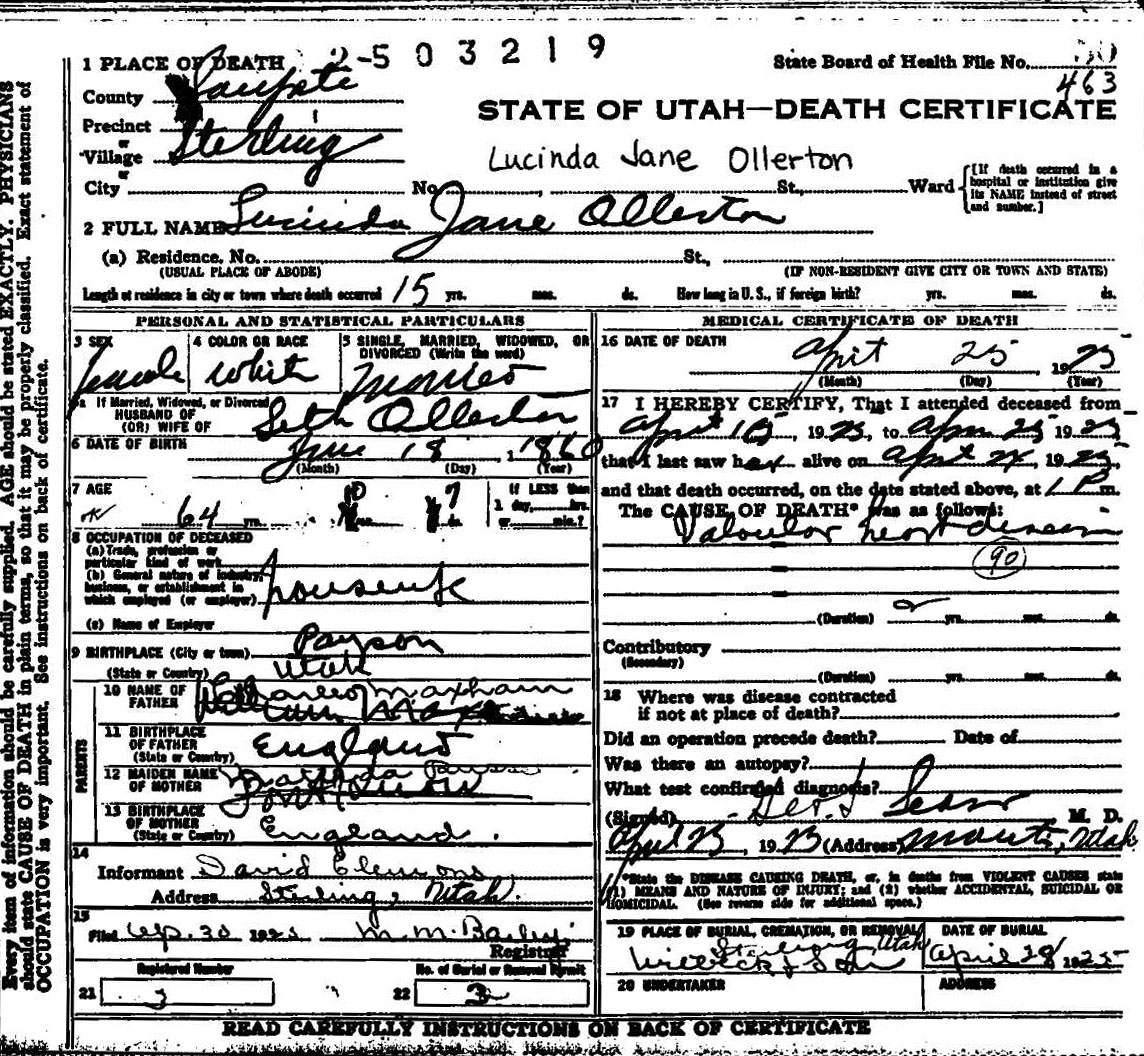 2-503219
1 PLACE OF DEATH
State Board of Health File No.
463
County Sanpete
STATE OF UTAH—DEATH CERTIFICATE
Precinct
or
Village Sterling
or
Lucinda Jane Ollerton
City No. St., Ward
[If death occurred in a hospital or institution give its NAME instead of street and number.]
2 FULL NAME Lucinda Jane Ollerton
(a) Residence. No. St.,
(USUAL PLACE OF ABODE) (IF NON-RESIDENT GIVE CITY OR TOWN AND STATE)
Length of residence in city or town where death occurred 15 yrs. mos. ds. How long in U. S., if foreign birth? yrs. mos. ds.
PERSONAL AND STATISTICAL PARTICULARS
3 SEX 4 COLOR OR RACE 5 SINGLE, MARRIED, WIDOWED, OR DIVORCED (Write the word)
female white Married
5a If Married, Widowed, or Divorced
HUSBAND OF
(OR) WIFE OF Seth Ollerton
6 DATE OF BIRTH June 18 1860
(Month) (Day) (Year)
7 AGE
64 yrs. 10 mos. 7 ds.
If LESS than 1 day, hrs. or min.?
8 OCCUPATION OF DECEASED
(a) Trade, profession or particular kind of work
(b) General nature of industry, business, or establishment in which employed (or employer) housewife
(c) Name of Employer
9 BIRTHPLACE (City or town) Payson
(State or Country) Utah
PARENTS
10 NAME OF FATHER Maxham
11 BIRTHPLACE OF FATHER
(State or Country) England
12 MAIDEN NAME OF MOTHER
13 BIRTHPLACE OF MOTHER
(State or Country) England.
14
Informant David
Address Sterling, Utah.
15
Filed Ap. 30 1925 M. M. Bailey
Registrar
Registered Number No. of Burial or Removal Permit
21 3 22 3
MEDICAL CERTIFICATE OF DEATH
16 DATE OF DEATH
April 25 1925
(Month) (Day) (Year)
17 I HEREBY CERTIFY, That I attended deceased from
April 1925, to April 25 1925
that I last saw her alive on April 24, 1925,
and that death occurred, on the date stated above, at 1 P m.
The CAUSE OF DEATH* was as follows:
Valvular heart disease
90
(Duration) 2 yrs. mos. ds.
Contributory
(Secondary)
(Duration) yrs. mos. ds.
18 Where was disease contracted
if not at place of death?
Did an operation precede death? Date of
Was there an autopsy?
What test confirmed diagnosis?
(Signed) Sears M. D.
April 25, 1925 (Address) Manti, Utah
*State the DISEASE CAUSING DEATH, or, in deaths from VIOLENT CAUSES state
(1) MEANS AND NATURE OF INJURY; and (2) whether ACCIDENTAL, SUICIDAL OR
HOMICIDAL. (See reverse side for additional space.)
19 PLACE OF BURIAL, CREMATION, OR REMOVAL DATE OF BURIAL
Sterling Utah April 28 1925
20 UNDERTAKER ADDRESS
READ CAREFULLY INSTRUCTIONS ON BACK OF CERTIFICATE
Every item of information should be carefully supplied. AGE should be stated EXACTLY. PHYSICIANS
should state CAUSE OF DEATH in plain terms, so that it may be properly classified. Exact statement of
OCCUPATION is very important. See instructions on back of certificate.